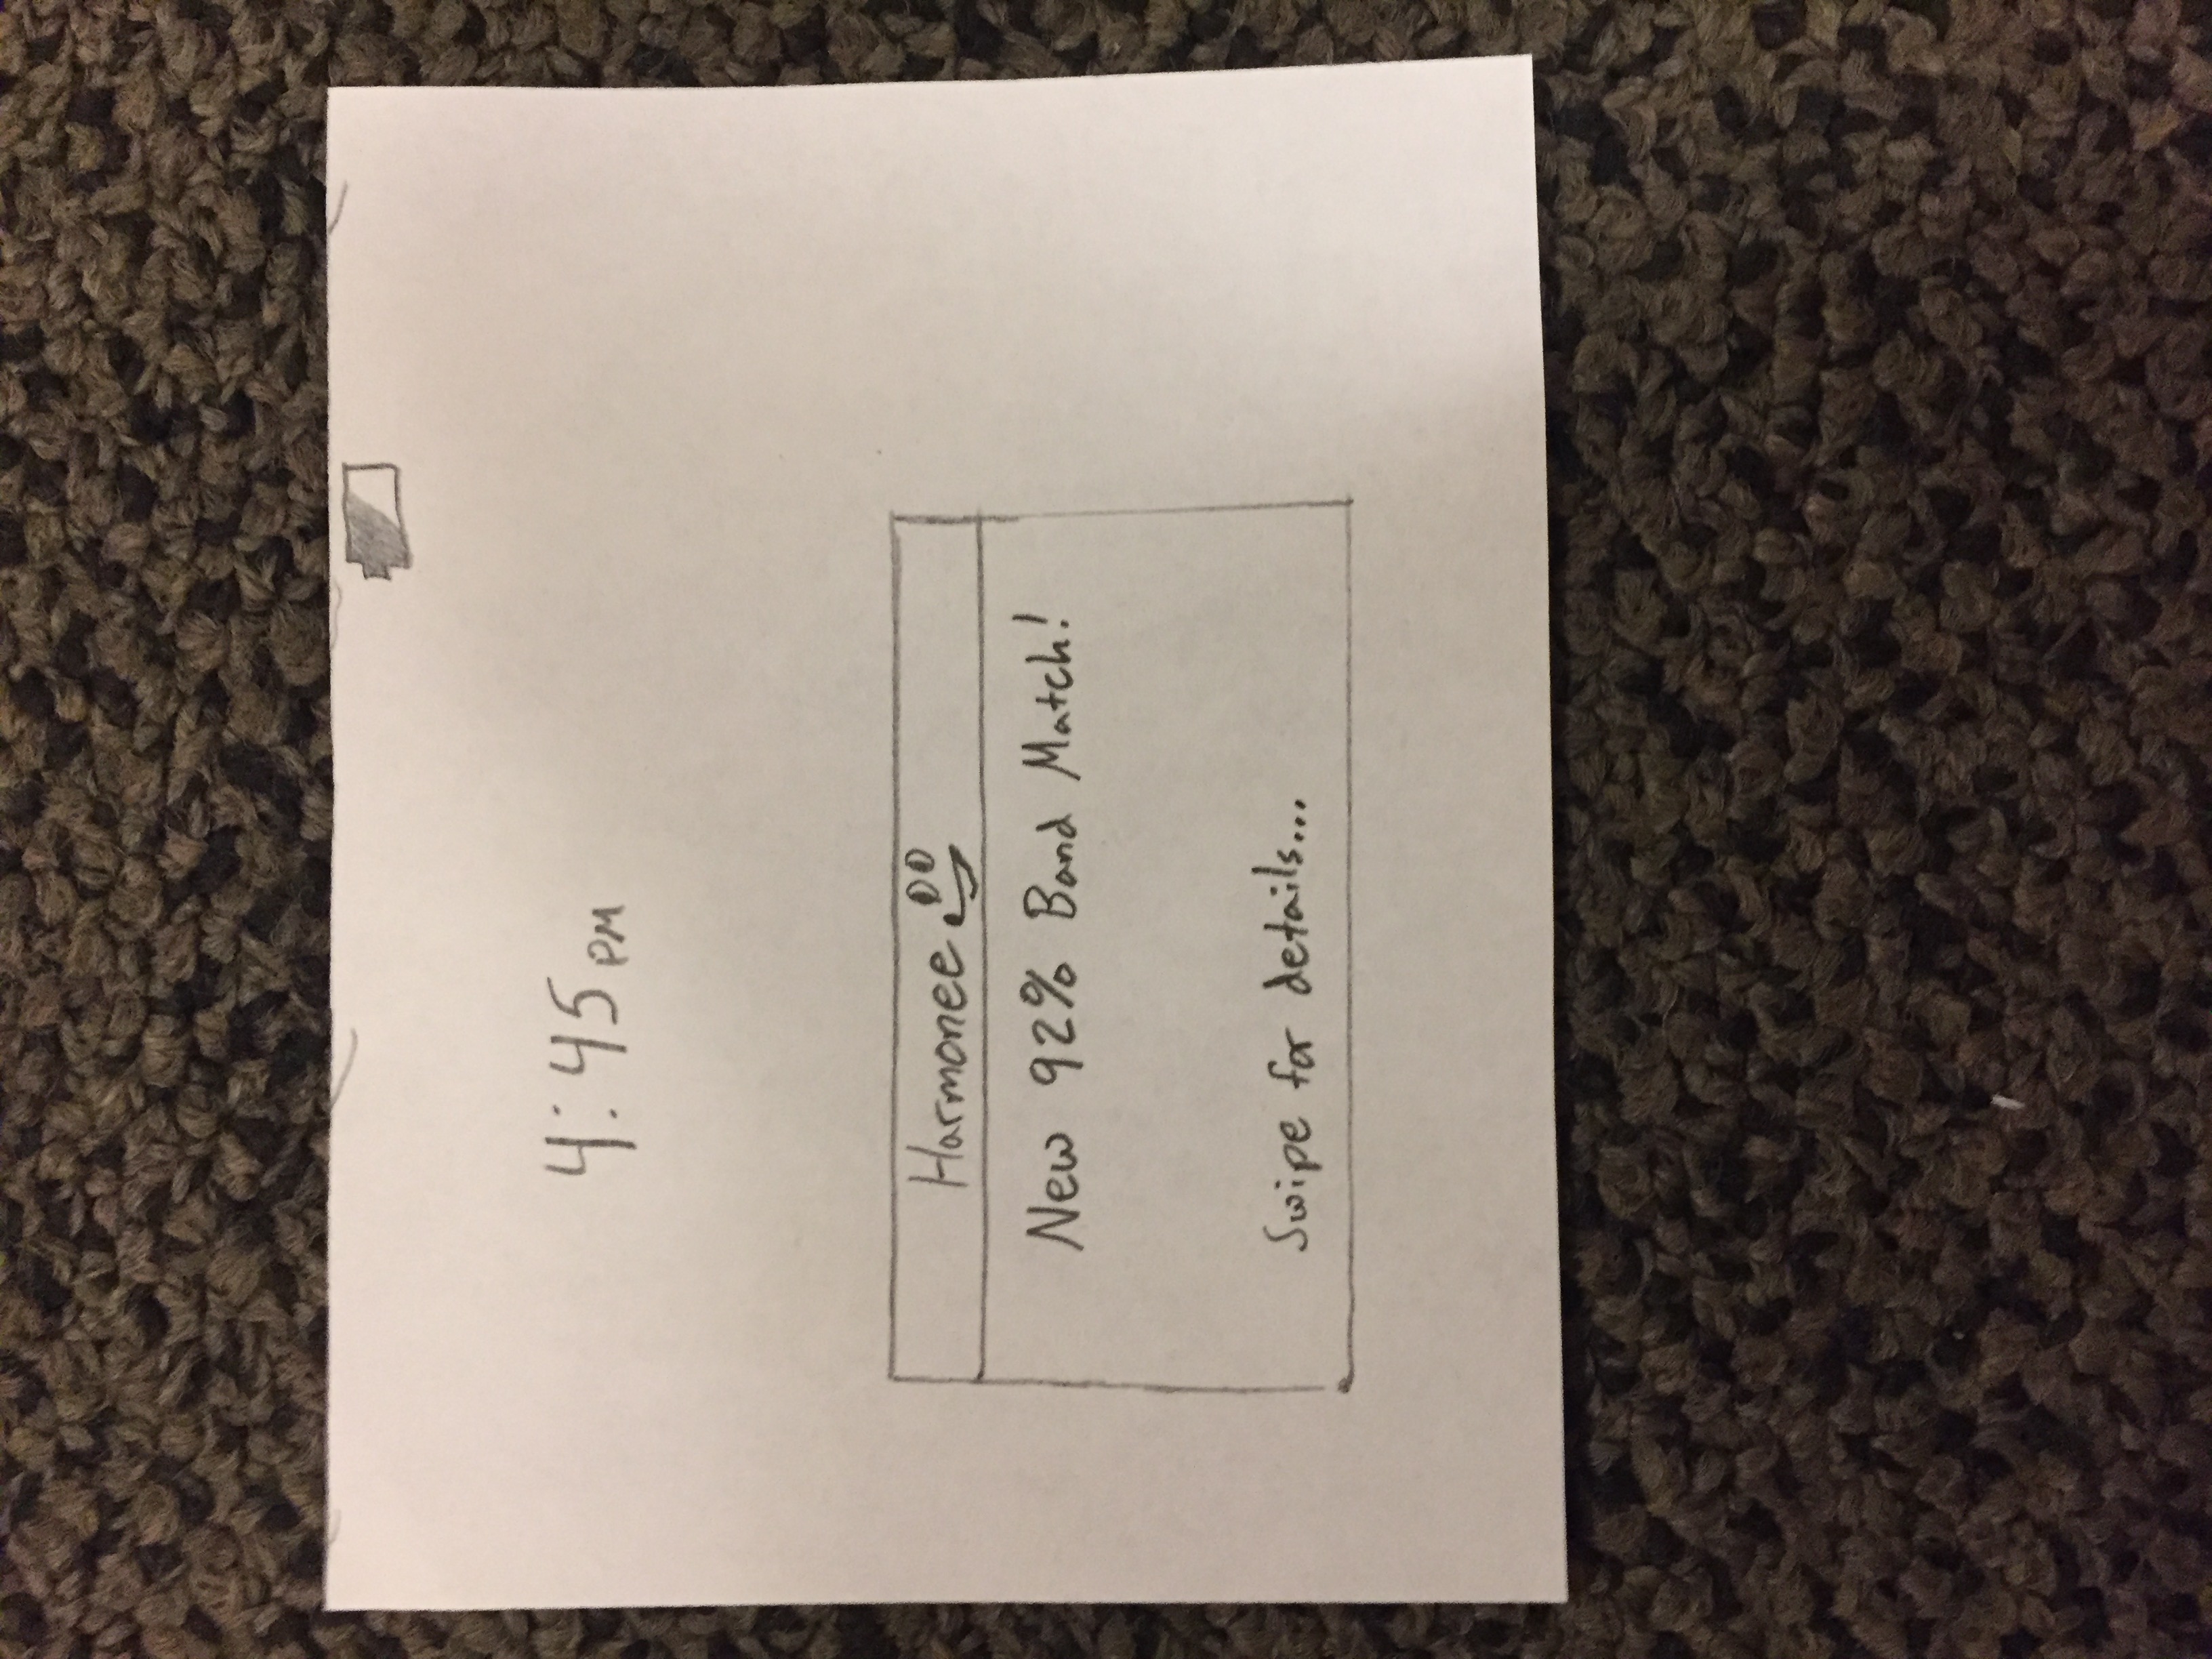 4:45 PM
Harmonee
New 92% Band Match!
Swipe for details...